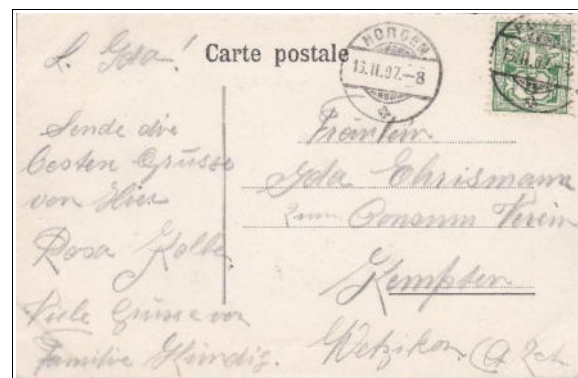 L. Ida!
Carte postale
HORGEN
13.II.07.-8
Sende die
besten Grüsse
von Hier
Rosa Kolbe
Viele Grüsse von
Familie Hündig.
Fräulein
Ida Ehrismann
zum Consum Verein
Kempten
Wetzikon